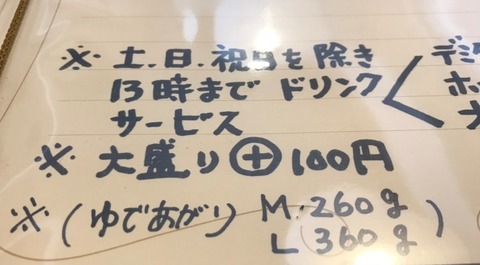 ※ 土.日.祝日を除き
13時まで ドリンク
サービス
デミ
ホッ
※ 大盛り⊕100円
※(ゆであがり M.260g
L 360g)